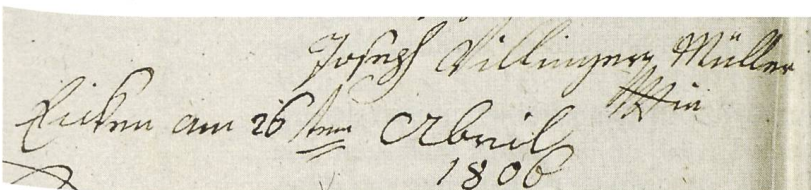 Joseph Villinger Müller
in
Eicken am 26 sten Abril
1806